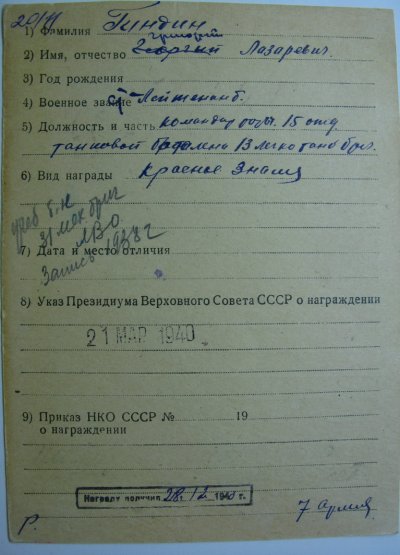 20/11
1) Фамилия Гиндин
Григорий
2) Имя, отчество Георгий Лазаревич.
3) Год рождения
4) Военное звание Лейтенант.
5) Должность и часть командир роты 15 отд
танковой 13 легко танк бриг.
6) Вид награды Красное Знамя
учеб б-н
31 мех бриг
ЛВО
Запись 1938 г
7) Дата и место отличия
8) Указ Президиума Верховного Совета СССР о награждении
21 МАР 1940
9) Приказ НКО СССР № 19
о награждении
Награду получил 28/12 1940 г.
Р. 7 Армия